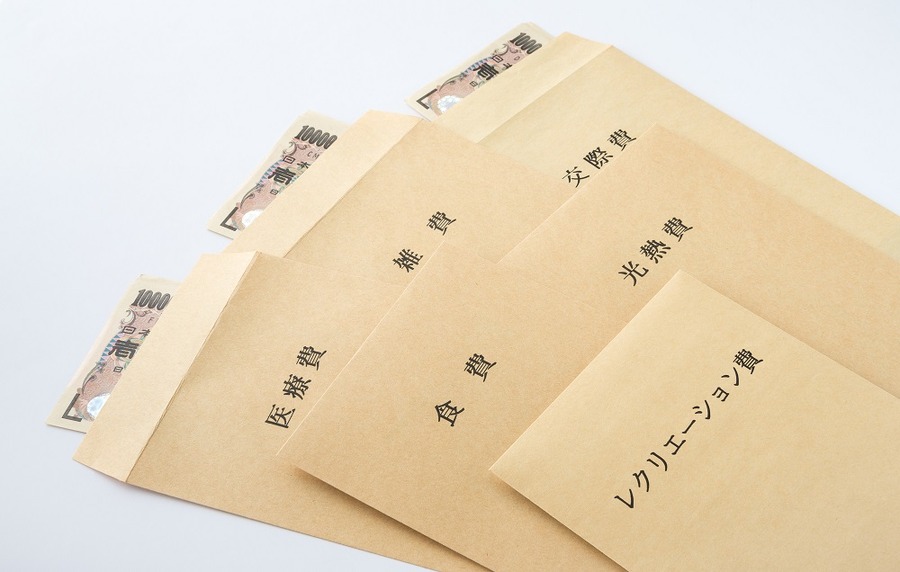 1000
交際費
10000
雑費
光熱費
1000
医療費
食費
レクリエーション費